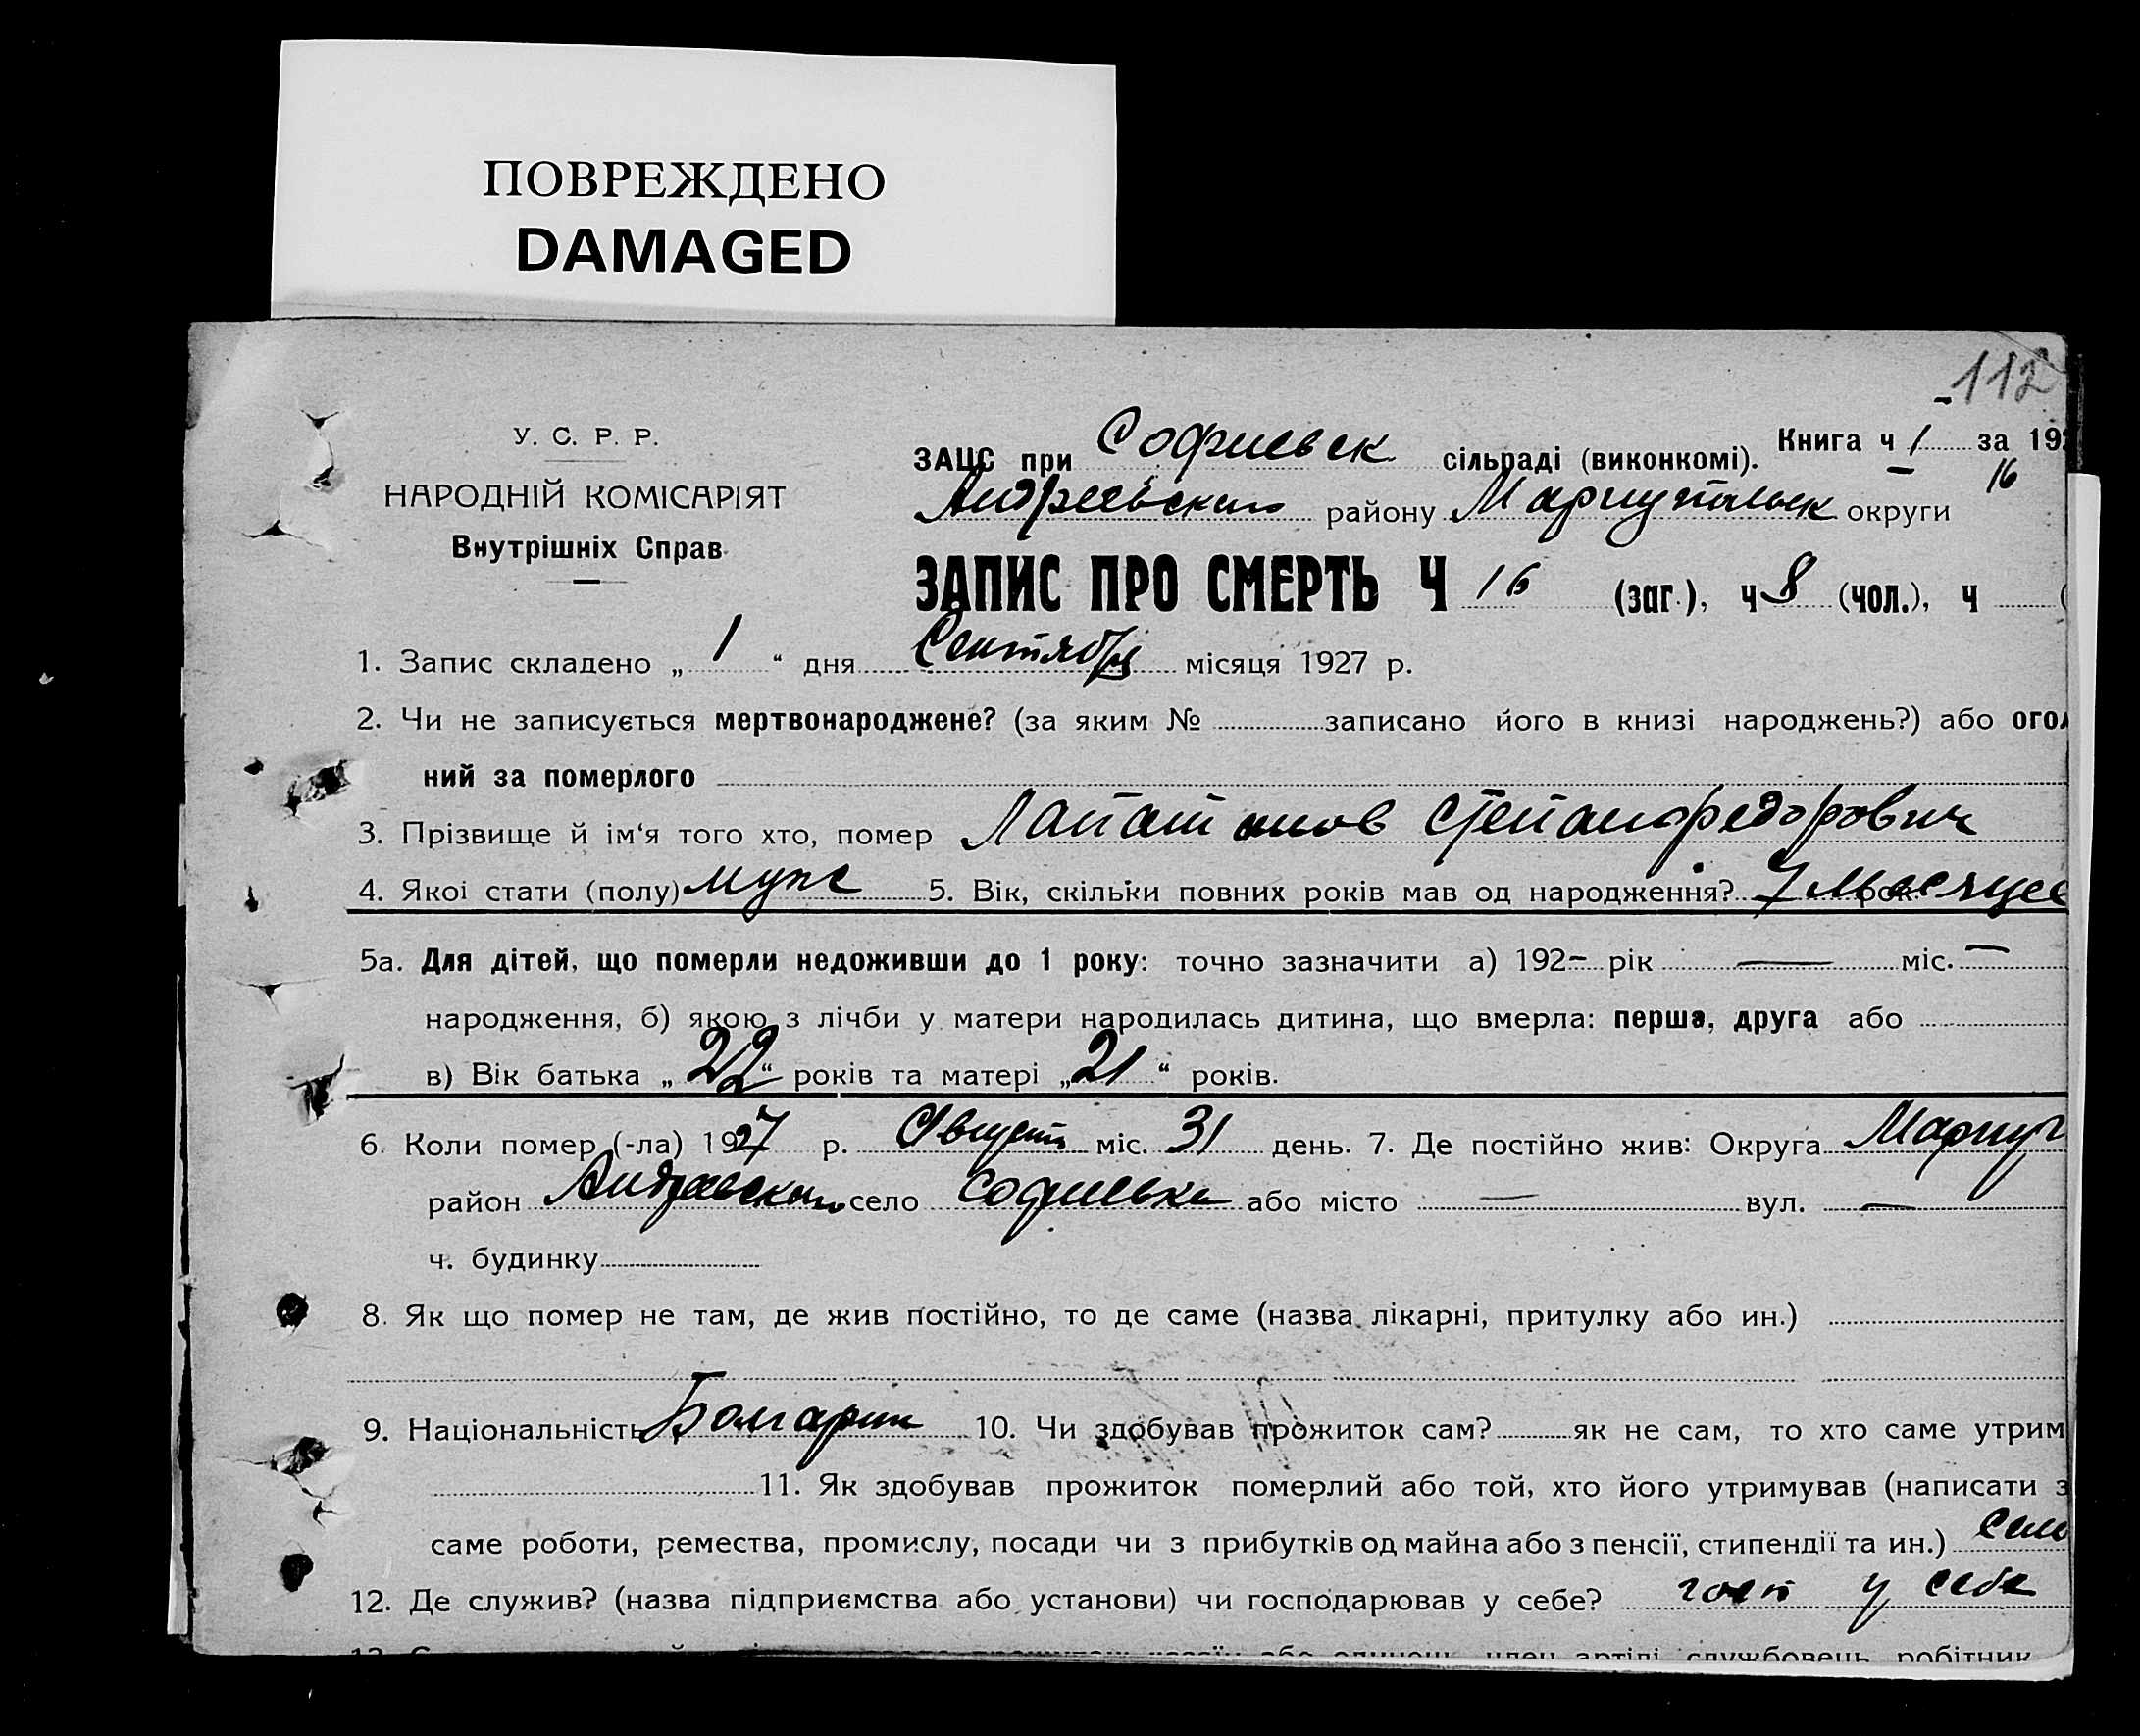 ПОВРЕЖДЕНО
DAMAGED
112
У. С. Р. Р.
НАРОДНІЙ КОМІСАРІЯТ
Внутрішніх Справ
ЗАЦС при Софиевск сільраді (виконкомі). Книга ч 1 за 192
16
Андреевского району Мариупольск округи
ЗАПИС ПРО СМЕРТЬ Ч 16 (заг.), ч 8 (чол.), ч (
1. Запис складено „ 1 “ дня Сентября місяця 1927 р.
2. Чи не записується мертвонароджене? (за яким № записано його в книзі народжень?) або огол
ний за померлого
3. Прізвище й ім‘я того хто, помер Степан Федорович
4. Якоі стати (полу) муж 5. Вік, скільки повних років мав од народження? 7 месяцев рок
5а. Для дітей, що померли недоживши до 1 року: точно зазначити а) 192- рік — міс. —
народження, б) якою з лічби у матери народилась дитина, що вмерла: перша, друга або
в) Вік батька „ 22 “ років та матері „ 21 “ років.
6. Коли помер (-ла) 1927 р. Август міс. 31 день. 7. Де постійно жив: Округа Мариуп
район Андреевского село Софиевка або місто — вул. —
ч. будинку
8. Як що помер не там, де жив постійно, то де саме (назва лікарні, притулку або ин.)
9. Національність Болгарин 10. Чи здобував прожиток сам? як не сам, то хто саме утрим
11. Як здобував прожиток померлий або той, хто його утримував (написати з
саме роботи, ремества, промислу, посади чи з прибутків од майна або з пенсії, стипендії та ин.) Село
12. Де служив? (назва підприємства або установи) чи господарював у себе? у себе